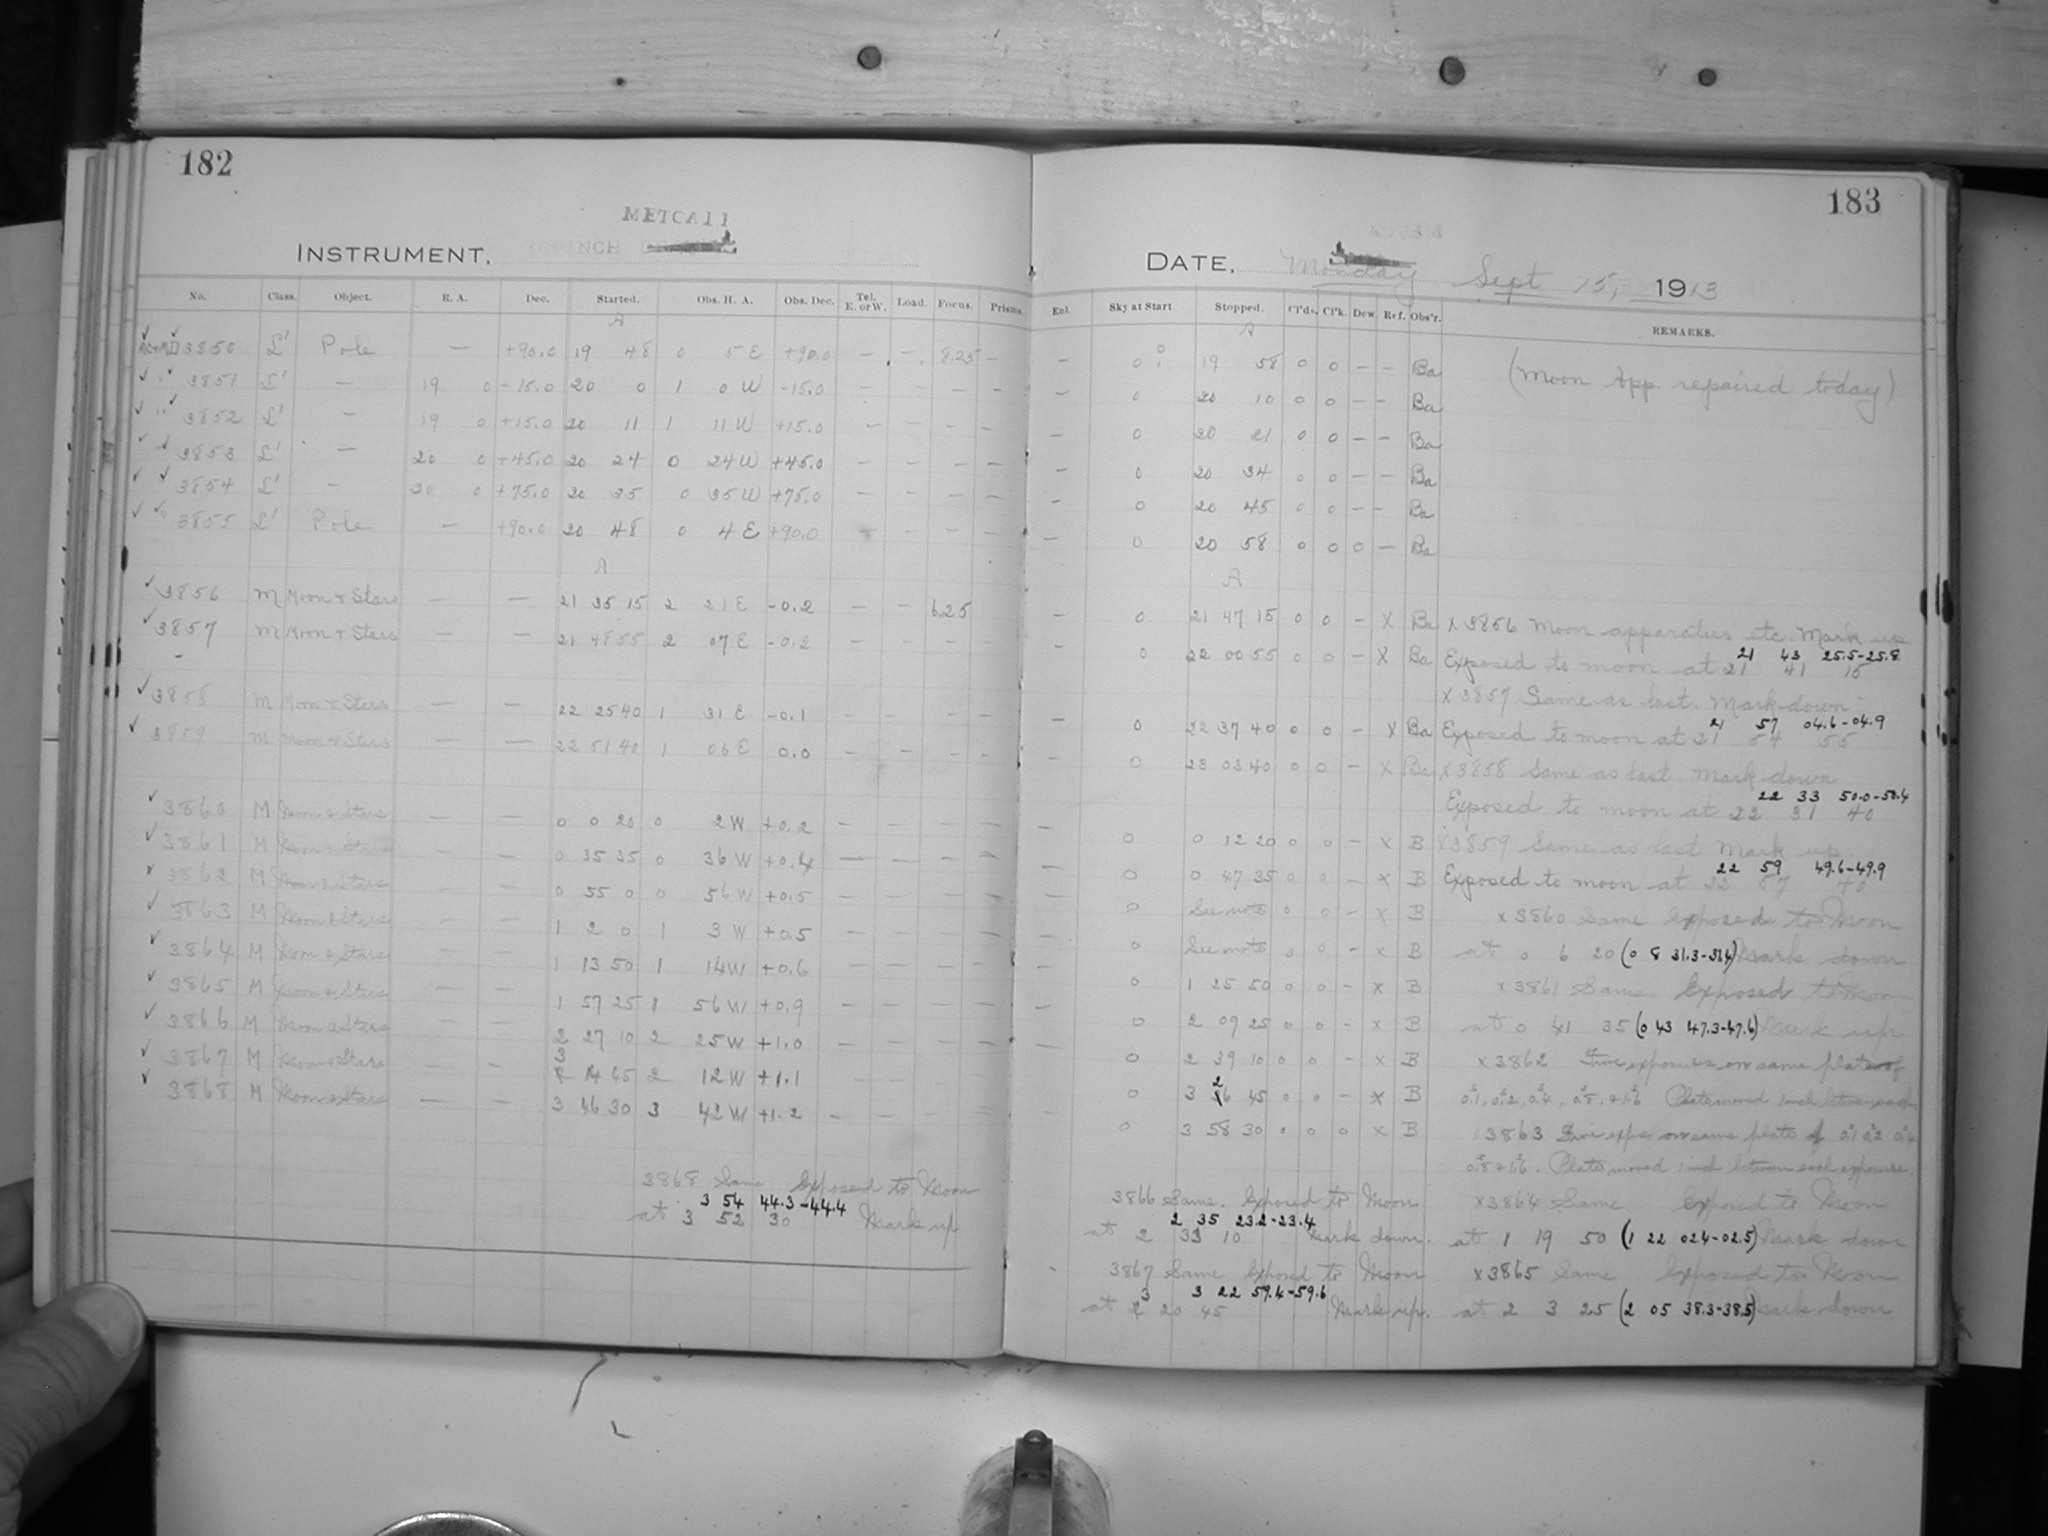 182
METCALF
INSTRUMENT. INCH
No. Class. Object. R. A. Dec. Started. Obs. H. A. Obs. Dec. Tel. E. or W. Load. Focus. Prisms.
A
3850 L' Pole — +90.0 19 48 0 5 E +90.0 — — 8.25 —
3851 L' — 19 0 -15.0 20 0 1 0 W -15.0 — — — —
3852 L' — 19 0 +15.0 20 11 1 11 W +15.0 — — — —
3853 L' — 20 0 +45.0 20 24 0 24 W +45.0 — — — —
3854 L' — 20 0 +75.0 20 35 0 35 W +75.0 — — — —
3855 L' Pole — +90.0 20 48 0 4 E +90.0 — — —
A
3856 M Moon & Stars — — 21 35 15 2 21 E -0.2 — — 6.25
3857 M Moon & Stars — — 21 48 55 2 07 E -0.2 — — — —
3858 M Moon & Stars — — 22 25 40 1 31 E -0.1 — — — —
3859 M Moon & Stars — — 22 51 40 1 06 E 0.0 — — — —
3860 M Moon & Stars — — 0 0 20 0 2 W +0.2 — — — —
3861 M Moon & Stars — — 0 35 35 0 36 W +0.4 — — — —
3862 M Moon & Stars — — 0 55 0 0 56 W +0.5 — — — —
3863 M Moon & Stars — — 1 2 0 1 3 W +0.5 — — — —
3864 M Moon & Stars — — 1 13 50 1 14 W +0.6 — — — —
3865 M Moon & Stars — — 1 57 25 1 56 W +0.9 — — — —
3866 M Moon & Stars — — 2 27 10 2 25 W +1.0 — — — —
3867 M Moon & Stars — — 3 14 45 2 12 W +1.1 — — — —
3868 M Moon & Stars — — 3 46 30 3 42 W +1.2 — — — —
3868 Same Exposed to Moon
3 54 44.3-44.4
at 3 52 30 Mark up
183
DATE, Monday Sept 15, 1913
Enl. Sky at Start. Stopped. Cl'ds. Cl'k. Dew. Ref. Obs'r. REMARKS.
A
— 0 19 58 0 0 — — Ba (Moon App. repaired today)
— 0 20 10 0 0 — — Ba
— 0 20 21 0 0 — — Ba
— 0 20 34 0 0 — — Ba
— 0 20 45 0 0 — — Ba
— 0 20 58 0 0 0 — Ba
A
— 0 21 47 15 0 0 — X Ba X 3856 Moon apparatus etc. Mark up
21 43 25.5-25.8
— 0 22 00 55 0 0 — X Ba Exposed to moon at 21 41 15
X 3857 Same as last. Mark down
21 57 04.6-04.9
— 0 22 37 40 0 0 — X Ba Exposed to moon at 21 54 55
0 23 03 40 0 0 — X Ba X 3858 Same as last. Mark down
22 33 50.0-50.4
Exposed to moon at 22 31 40
— 0 0 12 20 0 0 — X B X 3859 Same as last Mark up.
22 59 49.6-49.9
— 0 0 47 35 0 0 — X B Exposed to moon at 22 57 40
— 0 See note 0 0 — X B X 3860 Same Exposed to Moon
— 0 See note 0 0 — X B at 0 6 20 (0 8 31.3-31.4) Mark down
— 0 1 25 50 0 0 — X B X 3861 Same. Exposed to Moon
— 0 2 09 25 0 0 — X B at 0 41 35 (0 43 47.3-47.6) Mark up
— 0 2 39 10 0 0 — X B X 3862 Five exposures on same plate of
— 0 3 26 45 0 0 — X B 0.1, 0.2, 0.4, 0.8, & 1.6 Plate moved 1 inch between
— 0 3 58 30 0 0 0 X B X 3863 Five exps. on same plate of 0.1 0.2 0.4
0.8 & 1.6. Plate moved 1 inch between each exposure.
3866 Same. Exposed to Moon
2 35 23.2-23.4
at 2 33 10 Mark down.
3867 Same Exposed to Moon
3 22 59.4-59.6
at 3 20 45 Mark up.
X 3864 Same Exposed to Moon
at 1 19 50 (1 22 02.4-02.5) Mark down
X 3865 Same Exposed to Moon
at 2 3 25 (2 05 38.3-38.5) Mark down